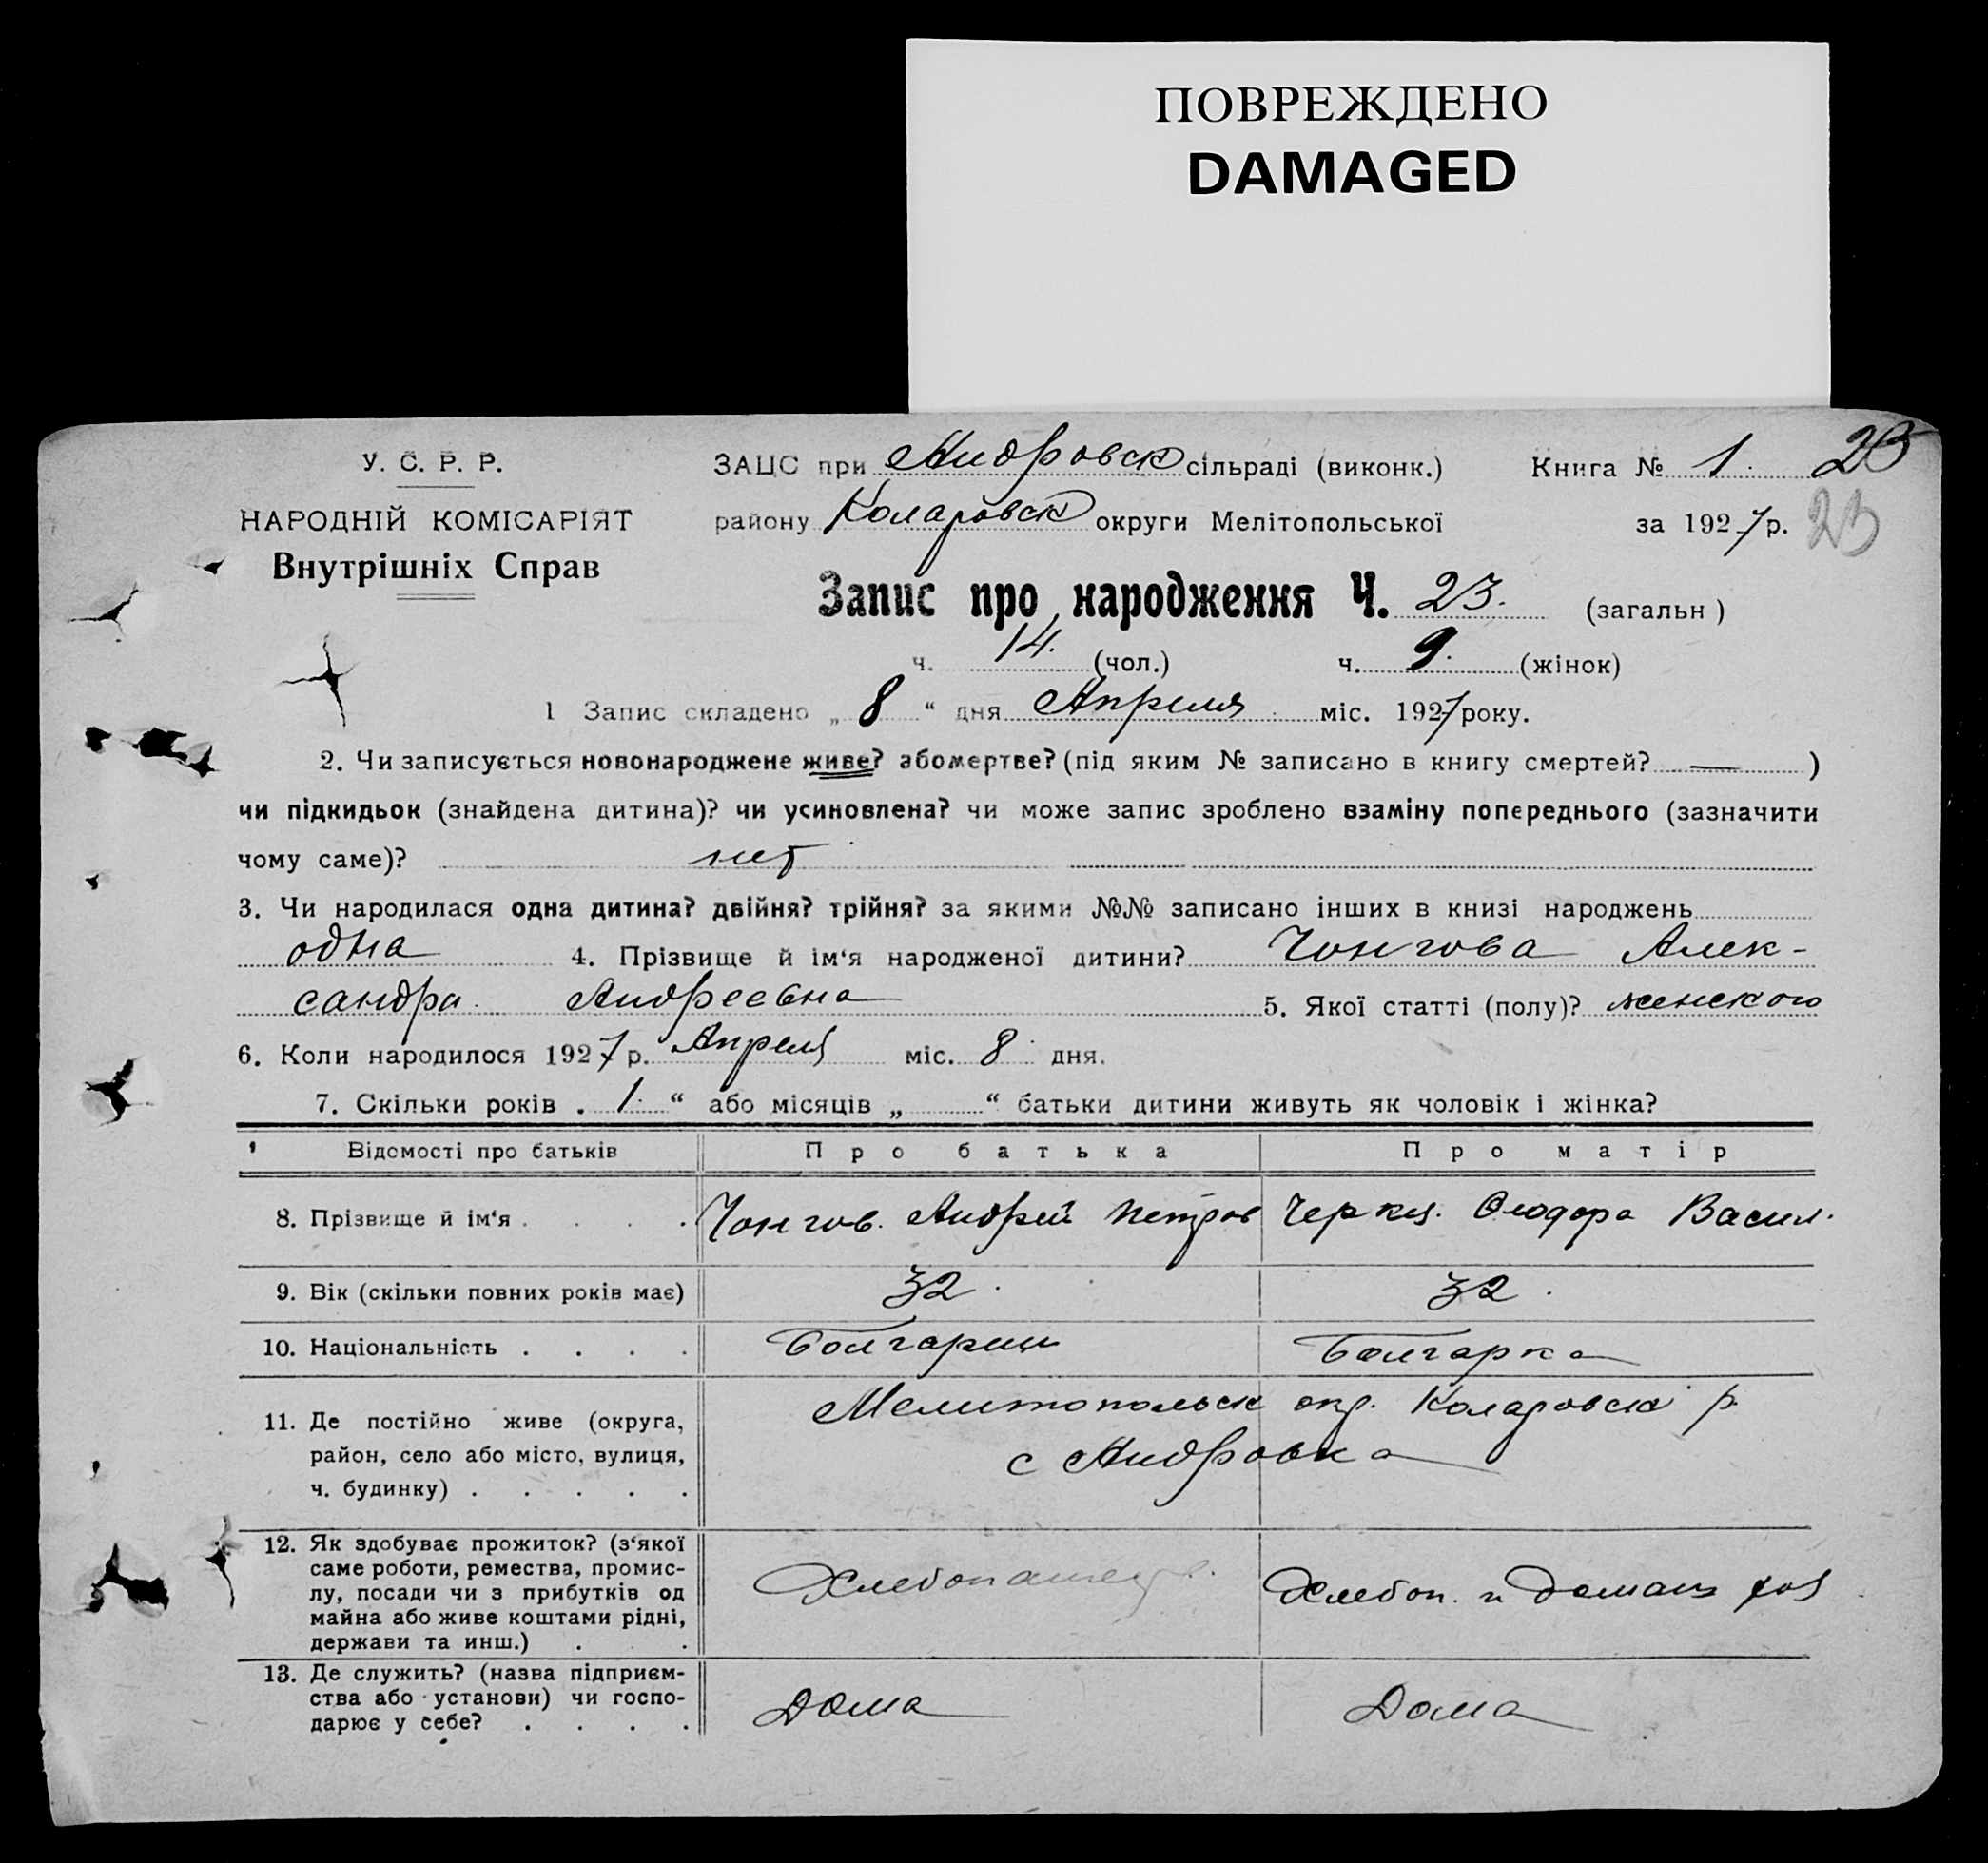 ПОВРЕЖДЕНО
DAMAGED
У. С. Р. Р.
НАРОДНІЙ КОМІСАРІЯТ
Внутрішніх Справ
ЗАЦС при Андровск сільраді (виконк.) Книга № 1. 23
району Коларовск округи Мелітопольської за 1927 р. 23
Запис про народження Ч. 23. (загальн)
ч. 14. (чол.) ч. 9. (жінок)
1 Запис складено „ 8 “ дня Апреля міс. 1927 року.
2. Чи записується новонароджене живе? або мертве? (під яким № записано в книгу смертей? — )
чи підкидьок (знайдена дитина)? чи усиновлена? чи може запис зроблено взаміну попереднього (зазначити
чому саме)? нет
3. Чи народилася одна дитина? двійня? трійня? за якими №№ записано інших в книзі народжень
одна 4. Прізвище й ім‘я народженої дитини? Чонгова Алек-
сандра Андреевна 5. Якої статті (полу)? женского
6. Коли народилося 1927 р. Апреля міс. 8 дня.
7. Скільки років . 1. “ або місяців „ “ батьки дитини живуть як чоловік і жінка?
Відомості про батьків Про батька Про матір
8. Прізвище й ім‘я . . . . Чонгов. Андрей Петров Федора Васил.
9. Вік (скільки повних років має) 32. 32.
10. Національність . . . . Болгарин Болгарка
11. Де постійно живе (округа,
район, село або місто, вулиця,
ч. будинку) . . . . .
Мелитопольск окр. Коларовска р.
с Андровка
12. Як здобуває прожиток? (з‘якої
саме роботи, ремества, промис-
лу, посади чи з прибутків од
майна або живе коштами рідні,
держави та инш.) . .
Хлебоп. и
13. Де служить? (назва підприєм-
ства або установи) чи госпо-
дарює у себе? . . . .
Дома Дома